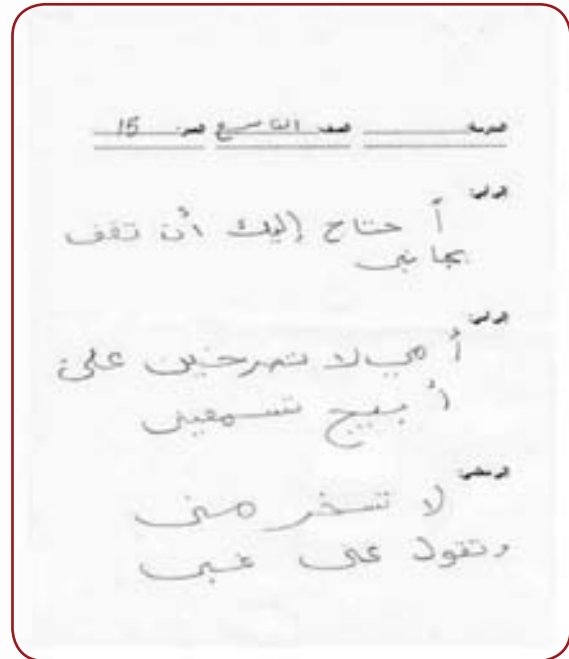 المدرسة الصف التاسع العمر 15
إلى أبي:
أحتاج إليك أن تقف
بجانبي
إلى أمي:
أمي لا تصرخين علي
أبيج تسمعيني
إلى معلمي:
لا تسخر مني
وتقول عني غبي